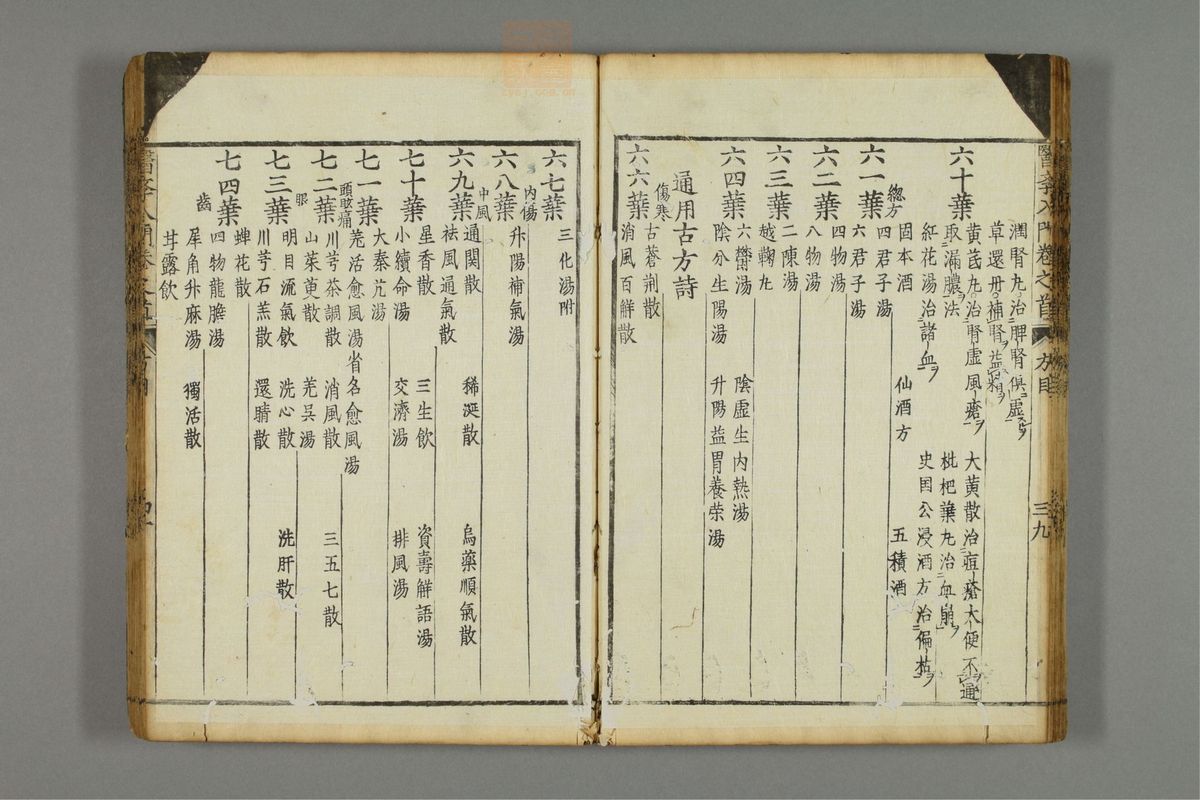 醫學入門卷之首
方目
三九
潤腎丸治脾腎俱虛
草還丹補腎益精
六十葉
黃芪丸治腎虛風瘡
大黃散治痘瘡大便不通
取漏膿法
枇杷葉丸治血崩
紅花湯治諸血
史囯公浸酒方治偏枯
總方
固本酒
仙酒方
五積酒
六一葉
四君子湯
六君子湯
四物湯
六二葉
八物湯
二陳湯
六三葉
越鞠丸
六鬱湯
陰虛生內熱湯
六四葉
陰分生陽湯
升陽益胃養荣湯
通用古方詩
傷寒
古蒼荆散
六六葉
消風百解散
六七葉
三化湯附
內傷
六八葉
升陽補氣湯
中風
通関散
稀涎散
烏藥順氣散
六九葉
祛風通氣散
星香散
三生飲
資壽解語湯
七十葉
小續命湯
交濟湯
排風湯
大秦艽湯
七一葉
羌活愈風湯省名愈風湯
頭眩痛
川芎茶調散
消風散
三五七散
七二葉
山茱萸散
羌吳湯
眼
明目流氣飲
洗心散
洗肝散
七三葉
川芎石羔散
還睛散
蟬花散
七四葉
四物龍膽湯
齒
犀角升麻湯
獨活散
甘露飲